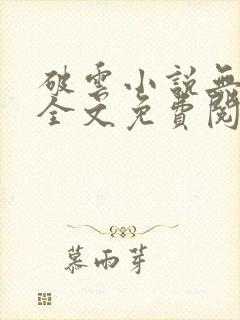 破雲小說無
全文免費閱
慕雨芽